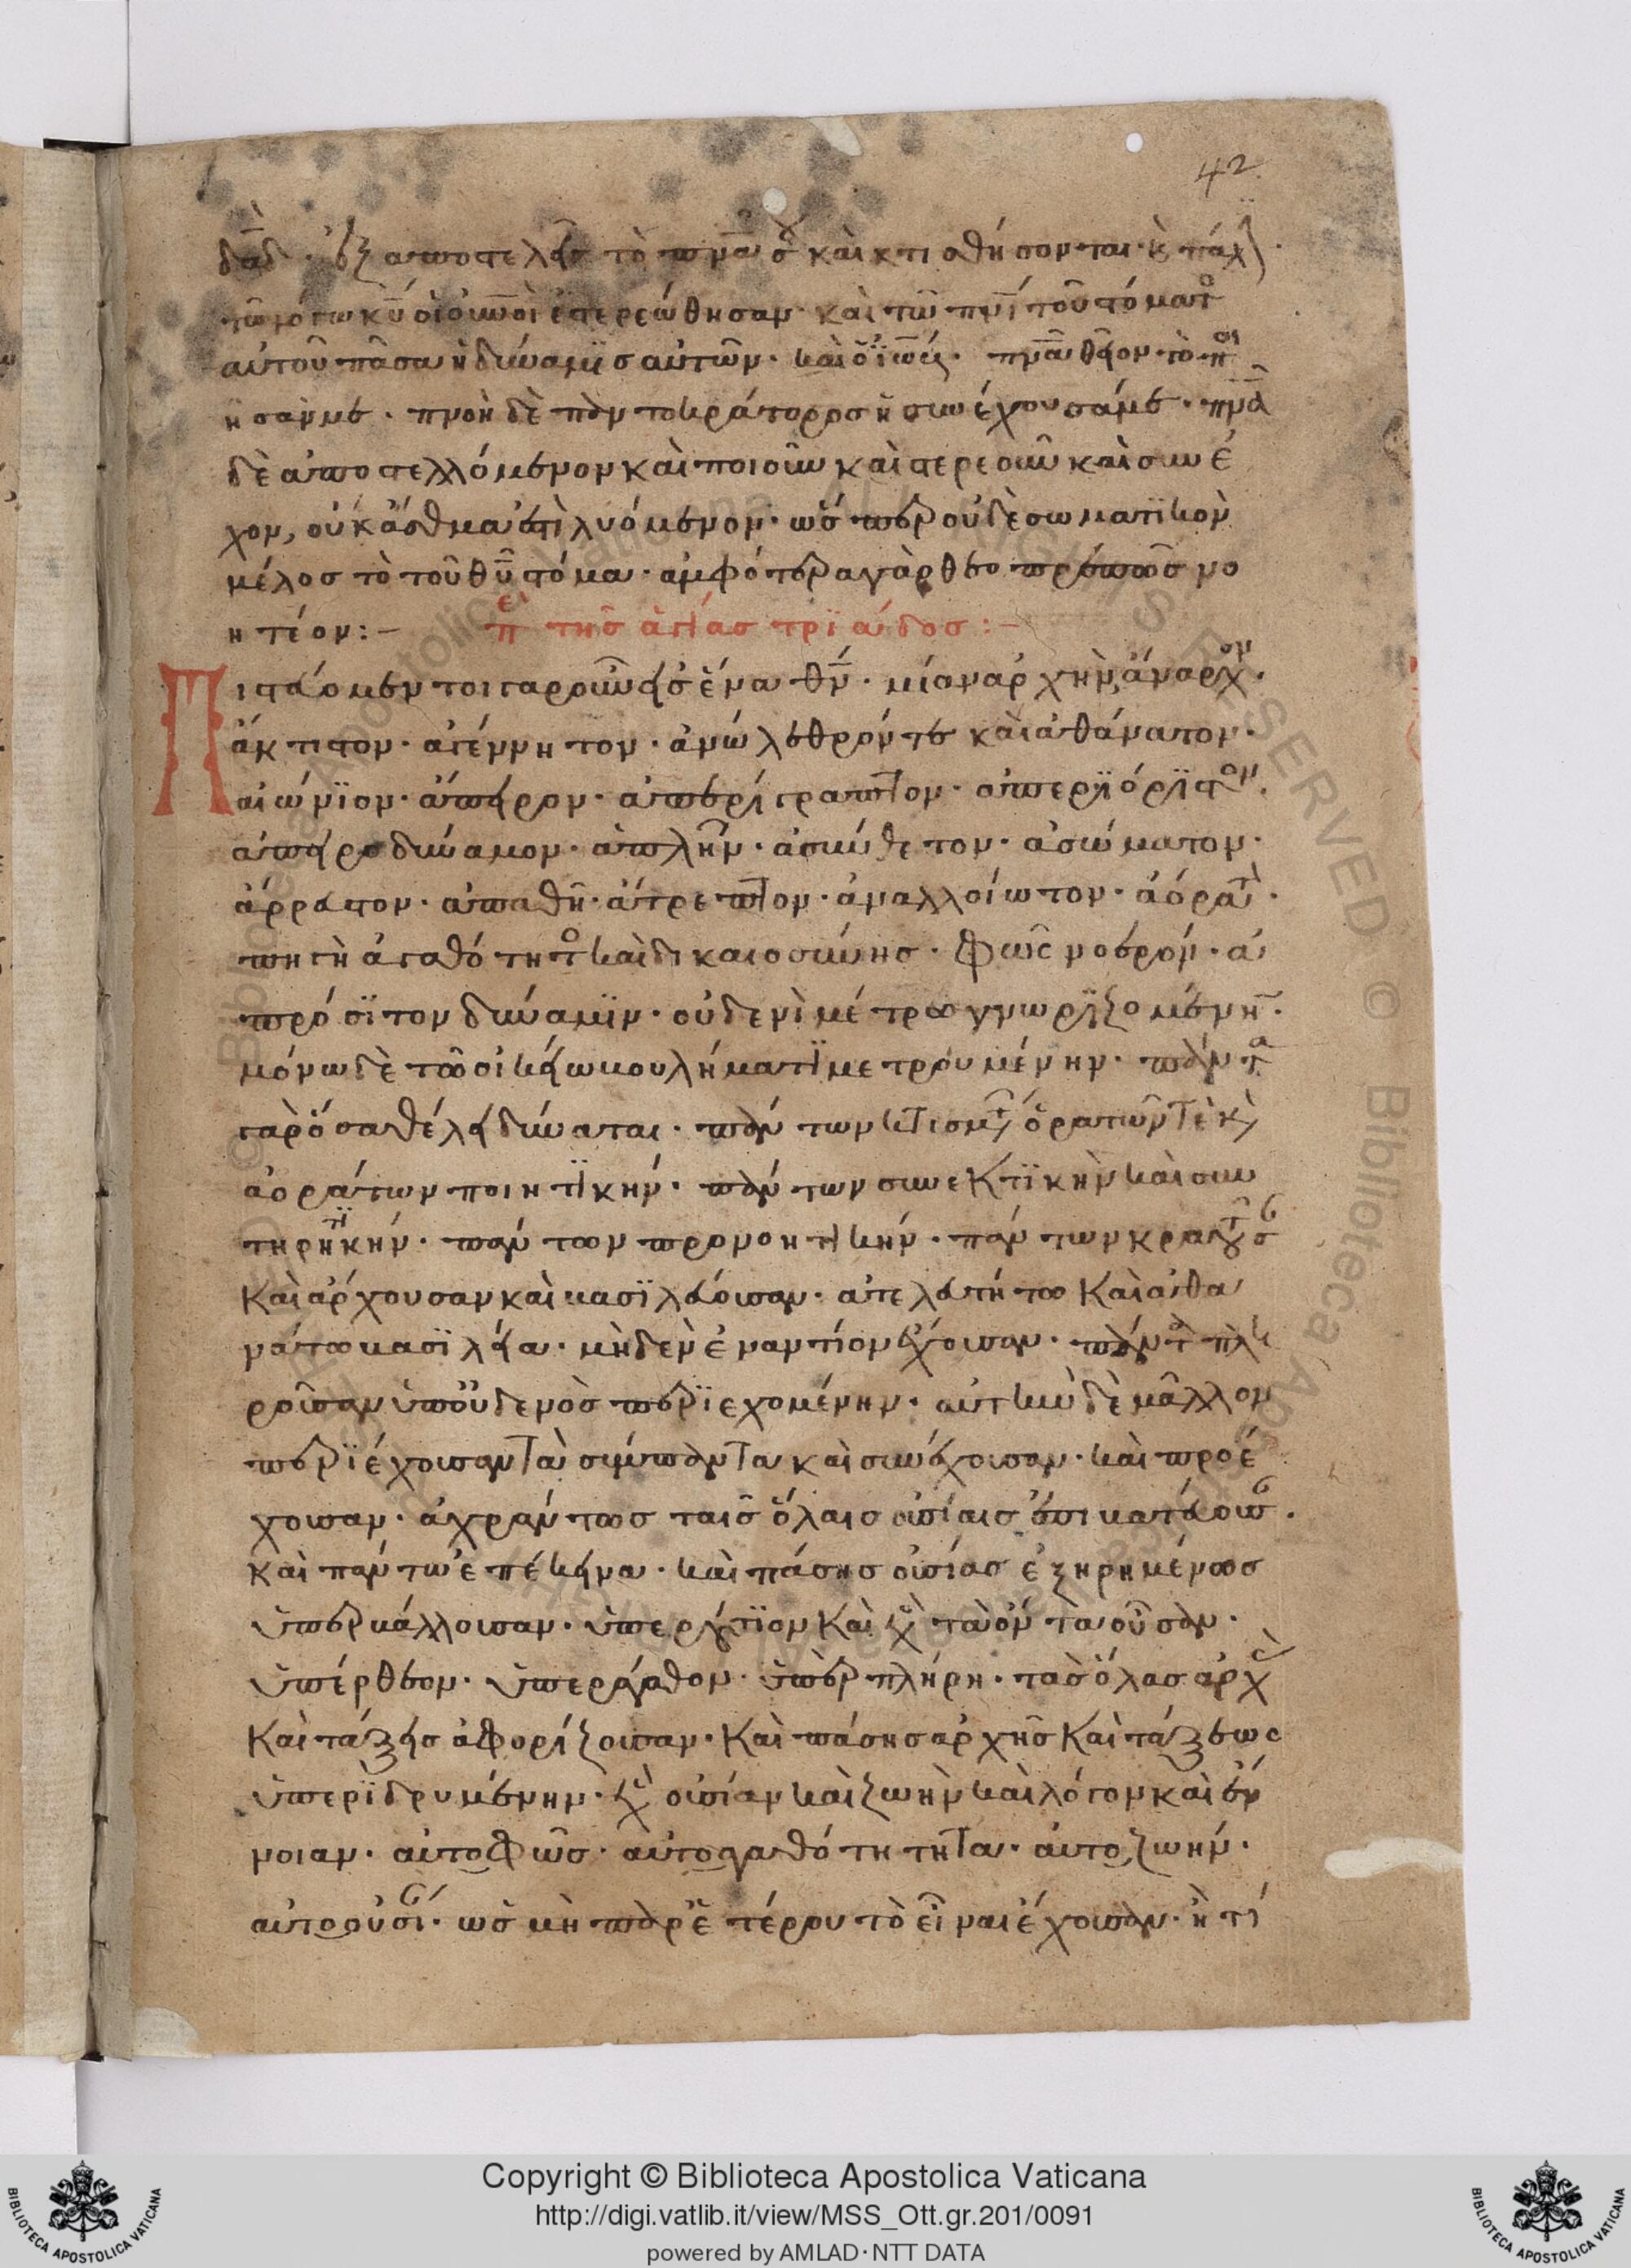 42
δαδ· ἐξαποστελεῖς τὸ πνα σου καὶ κτισθήσονται· κ πάλ·
τῶ λόγω κυ οἱ οὐνοὶ ἐστερεώθησαν· καὶ τῶ πνι τοῦ στόματο
αὐτοῦ πᾶσα ἡ δύναμϊσ αὐτῶν· καὶ ὁ ϊώβ· πνα θεῖον τὸ ποι
ῆσαν με· πνοὴ δὲ παντοκράτοροσ ἡ συνέχουσά με· πνα
δὲ ἀποστελλόμενον καὶ ποιοῦν καὶ στερεοῦν καὶ συνέ
χον, οὐκ ἆσθμα ἐστὶ λυόμενον· ὥσπερ οὐδὲ σωματϊκὸν
μέλοσ τὸ τοῦ θυ στόμα· ἀμφότερα γὰρ θεοπρεπῶσ νο
ητέον:–
περὶ τῆσ ἁγίασ τρϊάδοσ:–
Πιστεύομεν τοιγαροῦν εἰσ ἕνα θν· μίαν ἀρχὴν ἄναρχον·
ἄκτιστον· ἀγέννητον· ἀνώλεθρόν τε καὶ ἀθάνατον·
αἰώνϊον· ἄπειρον· ἀπερίγραπτον· ἀπερϊόρϊστον·
ἀπειροδύναμον· ἁπλῆν· ἀσύνθετον· ἀσώματον·
ἄρρευστον· ἀπαθῆ· ἄτρεπτον· ἀναλλοίωτον· ἀόρατ·
πηγὴ ἀγαθότητο καὶ δικαιοσύνησ· φῶσ νοερόν· ἀ
πρόσϊτον δύναμϊν· οὐδενὶ μέτρω γνωρϊζομένη·
μόνω δὲ τῶ οἰκείω βουλήματϊ μετρουμένην· πάντα
γὰρ ὅσα θέλει δύναται· πάντων κτισμτ ὁρατῶν τὲ κ
ἀοράτων ποιητϊκήν· πάντων συνεκτϊκὴν καὶ συν
τηρητϊκήν· πάντων προνοητικήν· πάντων κρατοῦσ
καὶ ἄρχουσαν καὶ βασϊλεύουσαν· ἀτελευτήτω καὶ ἀθα
νάτω βασϊλεία· μὴδεν ἐναντίον ἔχουσαν· πάντα πλη
ροῦσαν ὑπ' οὐδενὸσ περϊεχομένην· αὐτὴν δὲ μᾶλλον
περϊέχουσαν τὰ σύμπαντα καὶ συνέχουσαν· καὶ προέ
χουσαν· ἀχράντωσ ταῖσ ὅλαισ οὐσίαισ ἐπιβατεύουσ·
καὶ πάντων ἐπέκεινα· καὶ πάσησ οὐσίασ ἐξηρημένωσ
ὑπερβάλλουσαν· ὑπερούσϊον καὶ ὑπὲρ τὰ ὄντα οὖσαν·
ὑπέρθεον· ὑπεράγαθον· ὑπὲρ πλήρη· τὰσ ὅλασ ἀρχ
καὶ τάξεισ ἀφορίζουσαν· καὶ πάσησ ἀρχῆσ καὶ τάξεωσ
ὑπερϊδρυμένην· ὑπὲρ οὐσίαν καὶ ζωὴν καὶ λόγον καὶ ἔν
νοιαν· αὐτοφῶσ· αὐτοαγαθότητητα· αὐτοζωήν·
αὐτοουσί· ὡσ μὴ παρ' ἑτέρου τὸ εἶναι ἔχουσαν· ἤ τι
Copyright © Biblioteca Apostolica Vaticana
http://digi.vatlib.it/view/MSS_Ott.gr.201/0091
powered by AMLAD·NTT DATA